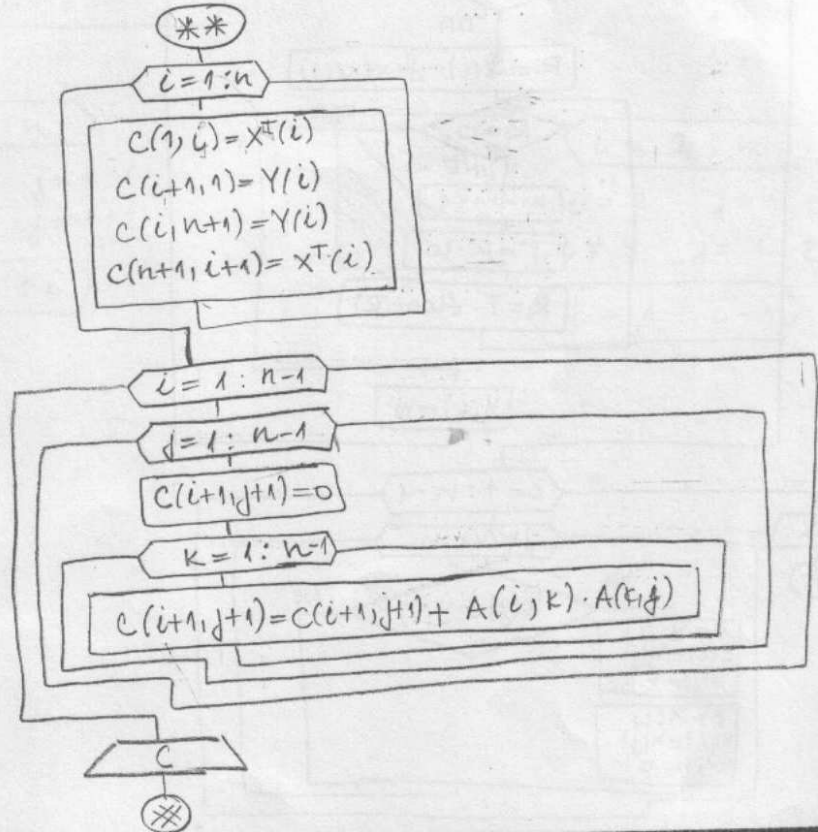 **
i = 1 : n
C(1, i) = X^T(i)
C(i+1, 1) = Y(i)
C(i, n+1) = Y(i)
C(n+1, i+1) = X^T(i)
i = 1 : n-1
j = 1 : n-1
C(i+1, j+1) = 0
K = 1 : n-1
C(i+1, j+1) = C(i+1, j+1) + A(i, K) · A(K, j)
C